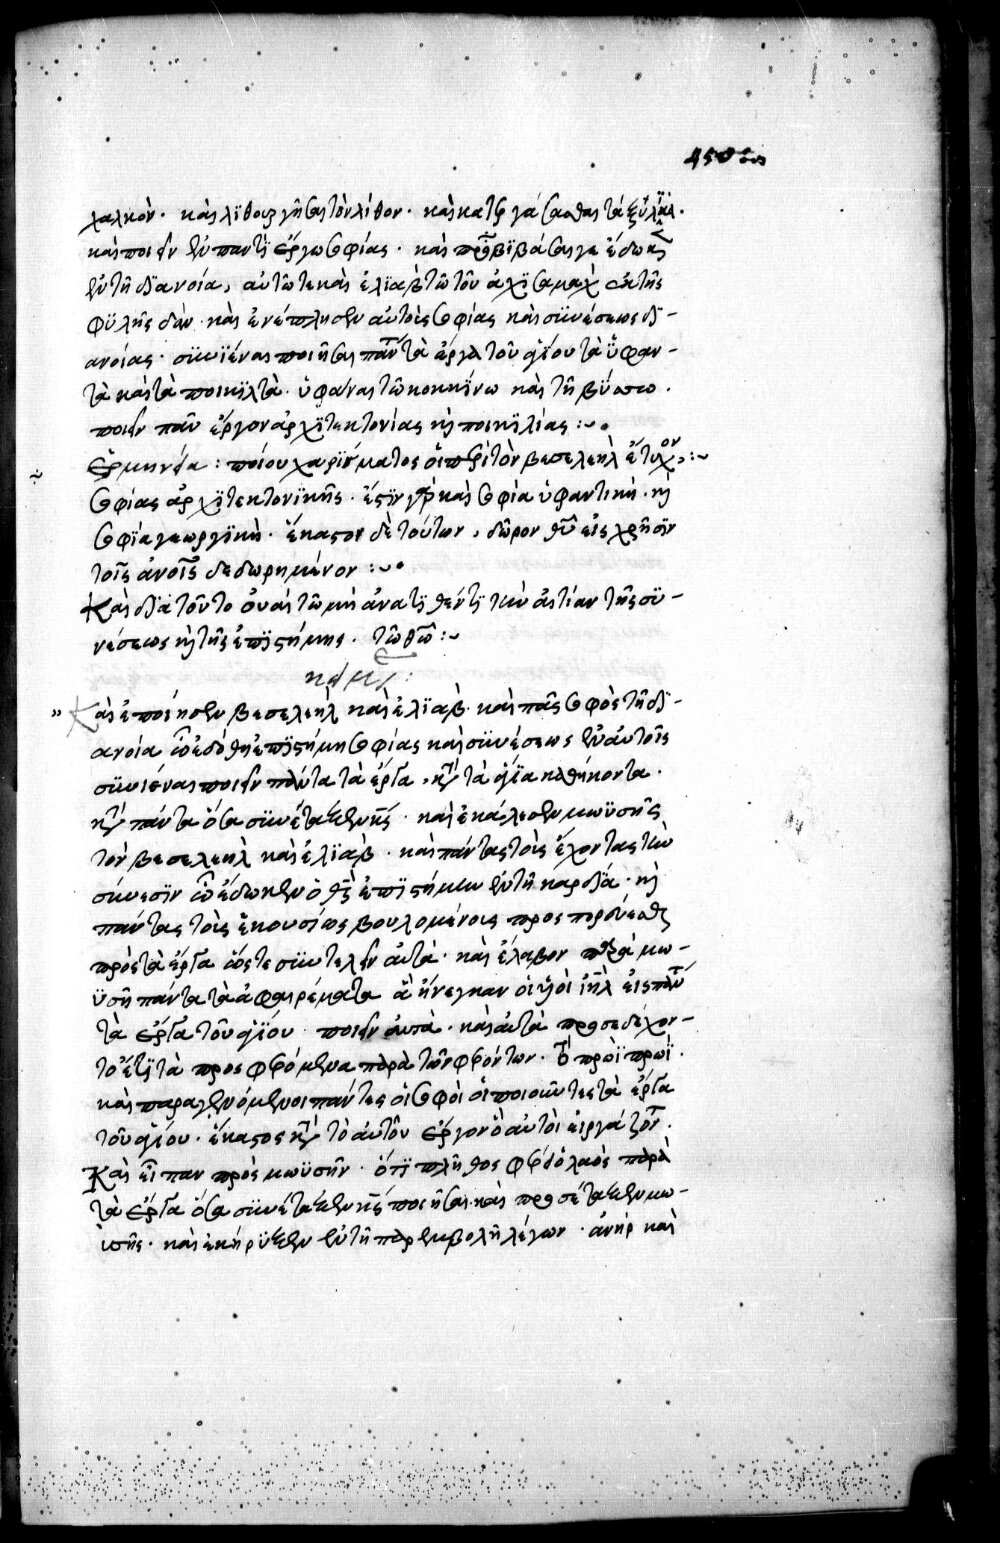 χαλκὸν· καὶ λϊθουργῆσαι τὸν λίθον· καὶ κατεργάσασθαι τὰ ξύλϊνα·
καὶ ποιεῖν ἐν παντὶ ἔργω σοφίας· καὶ προβϊβάσαι γε ἔδωκεν
ἐν τῆ δϊανοία, αὐτῶ τε καὶ ἐλϊαβ τῶ τοῦ ἀχϊσαμαχ ἐκ τῆς
φϋλῆς δάν· καὶ ἐνέπλησεν αὐτοὺς σοφίας καὶ σϋνέσεως δϊ-
ανοίας· σϋνϊέναι ποιῆσαι πάντα τὰ ἔργα τοῦ ἁγίου τὰ ὑφαν-
τὰ καὶ τὰ ποικϊλτὰ· ὑφάναι τῶ κοκκίνω καὶ τῆ βύσσω·
ποιεῖν πᾶν ἔργον ἀρχϊτεκτονίας κỳ ποικϊλίας :~
Ἑρμηνεία : ποίου χαρίσματος οἱ περὶ τὸν βεσελεὴλ ἔτυχον, :~
σοφίας ἀρχϊτεκτονϊκῆς· ἔστϊν γὰρ καὶ σοφία ὑφαντική· κỳ
σοφία γεωργϊκὴ· ἕκαστον δὲ τούτων, δῶρον θῦ εἰς χρῆσϊν
τοῖς ἀνοῖς δεδωρημένον :~
Καὶ δϊὰ τοῦτο οὐαὶ τῶ μὴ ἀνατϊθέντϊ τὴν αἰτίαν τῆς σϋ-
νέσεως κỳ τῆς ἐπϊστήμης· τῶ θῶ :~
κείμε:
Καὶ ἐποίησεν βεσελεὴλ καὶ ἐλϊαβ· καὶ πᾶς σοφὸς τῆ δϊ-
ανοία ὧ ἐδόθη ἐπϊστήμη σοφίας καὶ σϋνέσεως ἐν αὐτοῖς
σϋνιέναι ποιεῖν πάντα τὰ ἔργα, κατὰ τὰ ἅγϊα καθήκοντα·
κατὰ πάντα ὅσα σϋνέταξεν κς· καὶ ἐκάλεσεν μωϋσῆς
τὸν βεσελεὴλ καὶ ἐλϊαβ· καὶ πάντας τοὺς ἔχοντας τὴν
σύνεσϊν ὧ ἔδωκεν ὁ θς ἐπϊστήμην ἐν τῆ καρδία· κỳ
πάντας τοὺς ἑκουσίως βουλομένους προσπορεύεσθαι
πρὸς τὰ ἔργα ὥστε σϋντελεῖν αὐτὰ· καὶ ἔλαβον παρὰ μω-
ϋσῆ πάντα τὰ ἀφαιρέματα ἃ ἤνεγκαν οἱ ὑοὶ ἰηλ εἰς πάντα
τὰ ἔργα τοῦ ἁγίου ποιεῖν αὐτὰ· καὶ αὐτὰ προσεδέχον-
το ἔτϊ τὰ προσφερόμενα παρὰ τῶν φερόντων· τὸ πρωῒ πρωῒ·
καὶ παραγενόμενοι πάντες οἱ σοφοὶ οἱ ποιοῦντες τὰ ἔργα
τοῦ ἁγίου· ἕκαστος κατὰ τὸ αὐτοῦ ἔργον ὃ αὐτοὶ εἰργάζοντο·
Καὶ εἶπαν πρὸς μωϋσῆν· ὅτϊ πλῆθος φέρει ὁ λαὸς παρὰ
τὰ ἔργα ὅσα σϋνέταξεν κς ποιῆσαι· καὶ προσέταξεν μω-
ϋσῆς· καὶ ἐκήρϋξεν ἐν τῆ παρεμβολῆ λέγων· ἀνὴρ καὶ